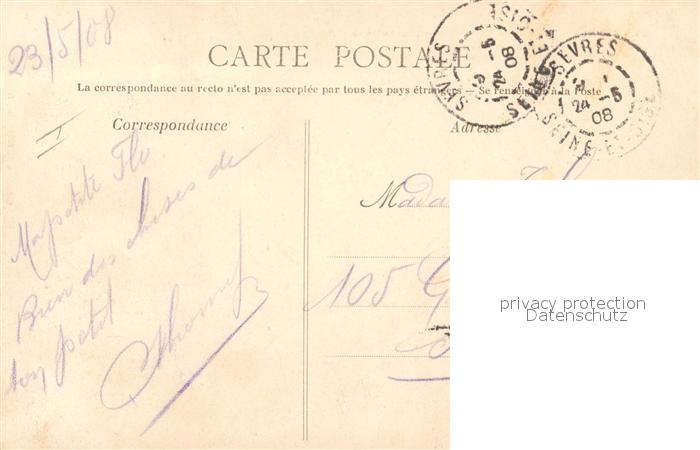 23/5/08
CARTE POSTALE
La correspondance au recto n'est pas acceptée par tous les pays étrangers — Se renseigner à la Poste
SEVRES
24 -5
08
SEINE-ET-OISE
SEVRES
24 -5
08
SEINE-ET-OISE
I
Correspondance
Adresse
Ma petite Flo
Bien des choses de
ton petit
Mada
105 G
privacy protection
Datenschutz